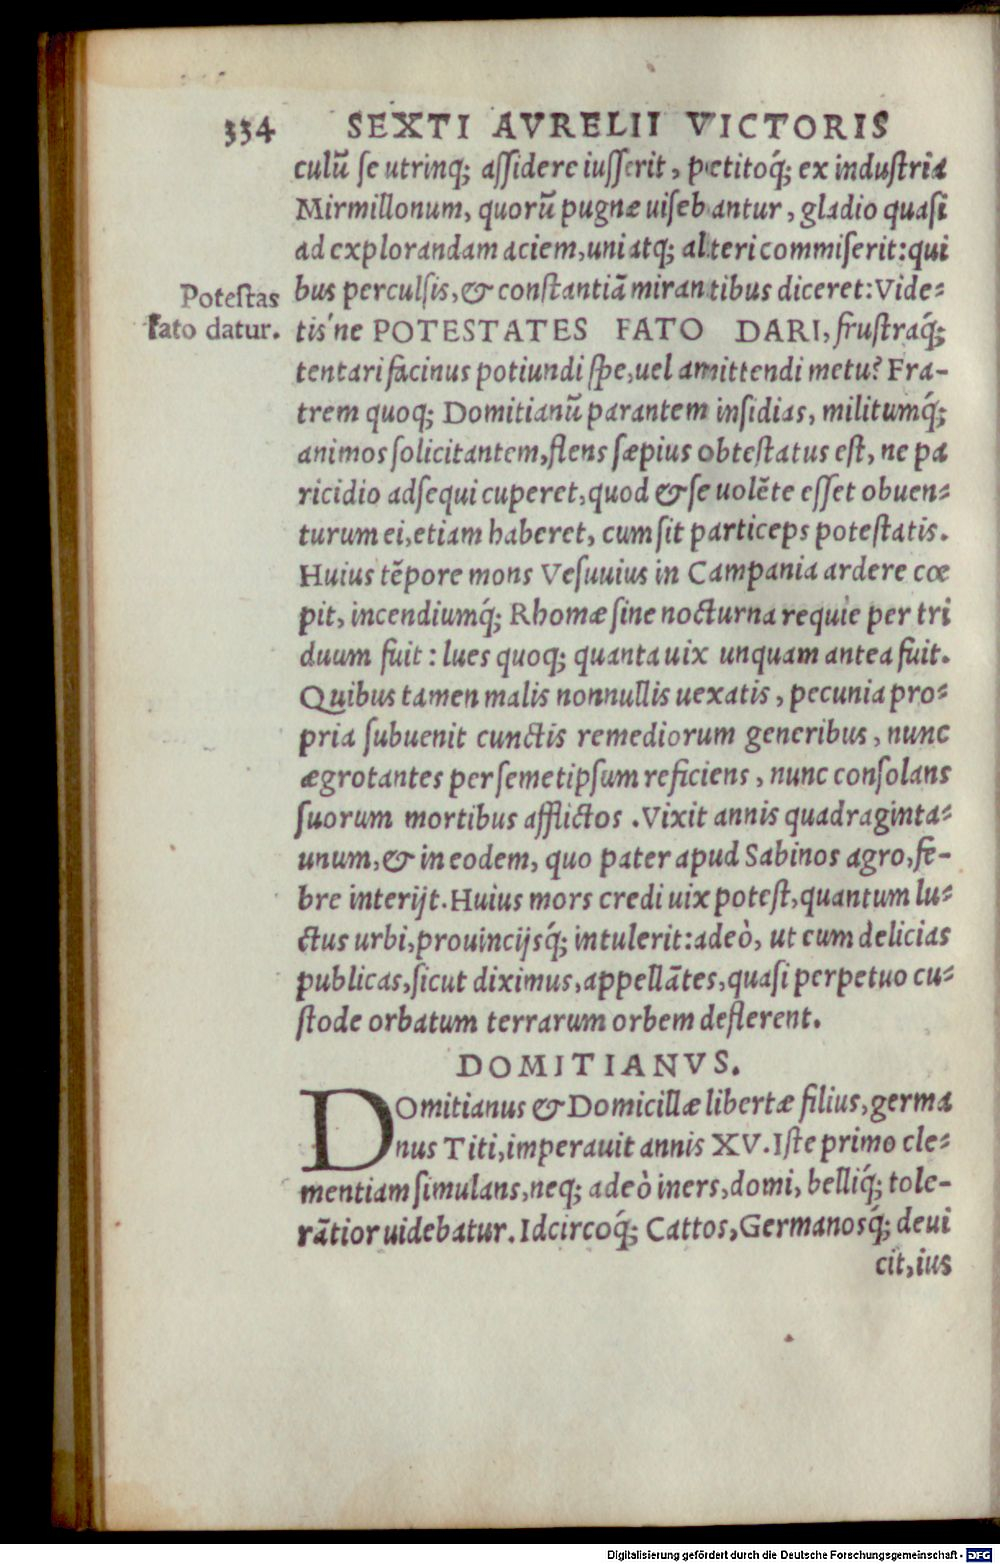 334 SEXTI AVRELII VICTORIS
culũ se utrinq; aſſidere iuſſerit, petitoq́; ex induſtria
Mirmillonum, quorũ pugnæ uiſebantur, gladio quaſi
ad explorandam aciem, uni atq; alteri commiſerit: qui
bus perculſis, & conſtantiã mirantibus diceret: Vide-
Potestas
fato datur.
tis'ne POTESTATES FATO DARI, fruſtraq́;
tentari facinus potiundi ſpe, uel amittendi metu? Fra-
trem quoq; Domitianũ parantem inſidias, militumq́;
animos ſolicitantem, flens ſæpius obteſtatus eſt, ne pa
ricidio adſequi cuperet, quod & ſe uolẽte eſſet obuen-
turum ei, etiam haberet, cum ſit particeps poteſtatis.
Huius tẽpore mons Veſuuius in Campania ardere cœ
pit, incendiumq́; Rhomæ ſine nocturna requie per tri
duum fuit: lues quoq; quanta uix unquam antea fuit.
Quibus tamen malis nonnullis uexatis, pecunia pro-
pria ſubuenit cunctis remediorum generibus, nunc
ægrotantes per ſemetipſum reficiens, nunc conſolans
ſuorum mortibus afflictos. Vixit annis quadraginta-
unum, & in eodem, quo pater apud Sabinos agro, fe-
bre interijt. Huius mors credi uix poteſt, quantum lu-
ctus urbi, prouincijsq́; intulerit: adeò, ut eum delicias
publicas, ſicut diximus, appellãtes, quaſi perpetuo cu-
ſtode orbatum terrarum orbem deflerent.
DOMITIANVS.
DOmitianus & Domicillæ libertæ filius, germa
nus Titi, imperauit annis XV. Iſte primo cle-
mentiam ſimulans, neq; adeò iners, domi, belliq́; tole-
rãtior uidebatur. Idcircoq́; Cattos, Germanosq́; deui
cit, ius
Digitalisierung gefördert durch die Deutsche Forschungsgemeinschaft - DFG